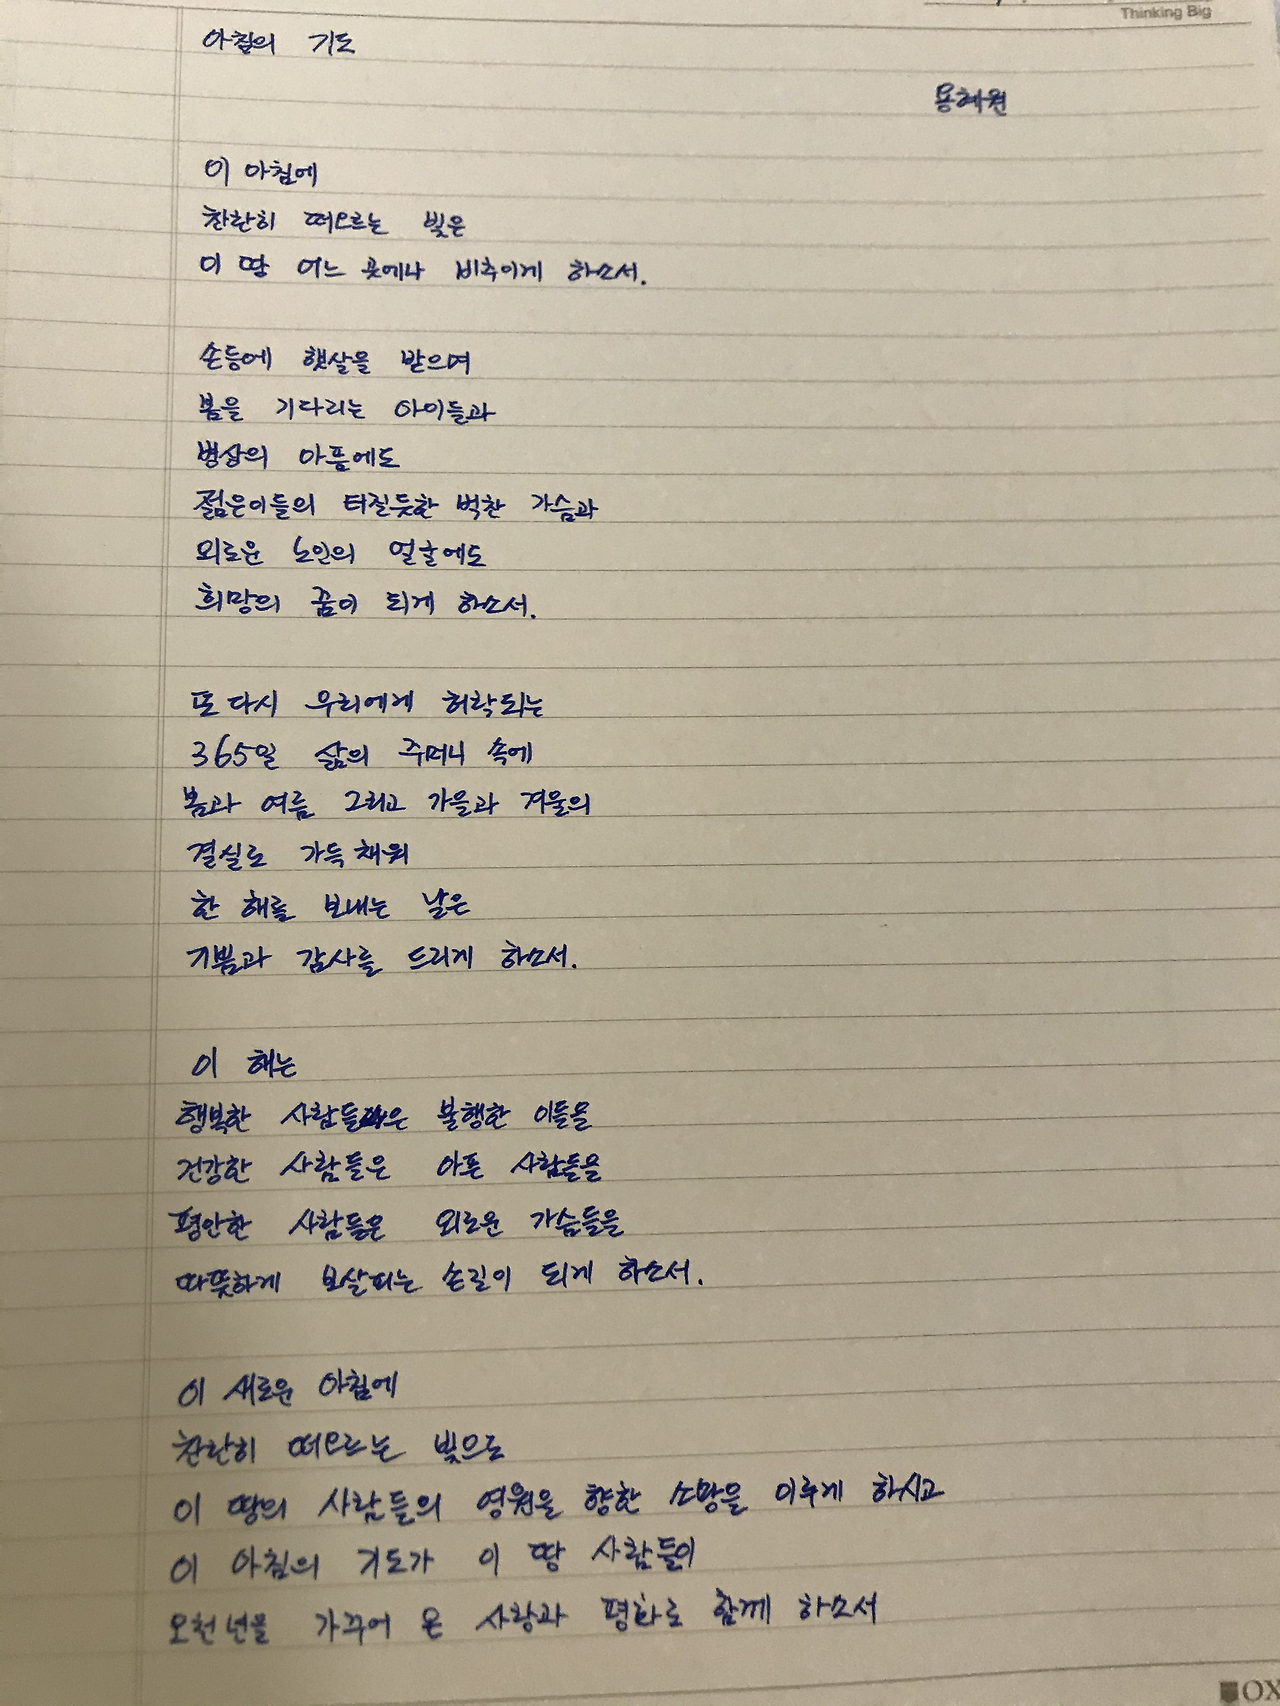 Thinking Big
아침의 기도
용혜원
이 아침에
찬란히 떠오르는 빛은
이 땅 어느 곳에나 비추이게 하소서.
손등에 햇살을 받으며
봄을 기다리는 아이들과
병상의 아픔에도
젊은이들의 터질듯한 벅찬 가슴과
외로운 노인의 얼굴에도
희망의 꿈이 되게 하소서.
또 다시 우리에게 허락되는
365일 삶의 주머니 속에
봄과 여름 그리고 가을과 겨울의
결실로 가득 채워
한 해를 보내는 날은
기쁨과 감사를 드리게 하소서.
이 해는
행복한 사람들은 불행한 이들을
건강한 사람들은 아픈 사람들을
평안한 사람들은 외로운 가슴들을
따뜻하게 보살피는 손길이 되게 하소서.
이 새로운 아침에
찬란히 떠오르는 빛으로
이 땅의 사람들의 영원을 향한 소망을 이루게 하시고
이 아침의 기도가 이 땅 사람들이
오천년을 가꾸어 온 사랑과 평화로 함께 하소서
OX